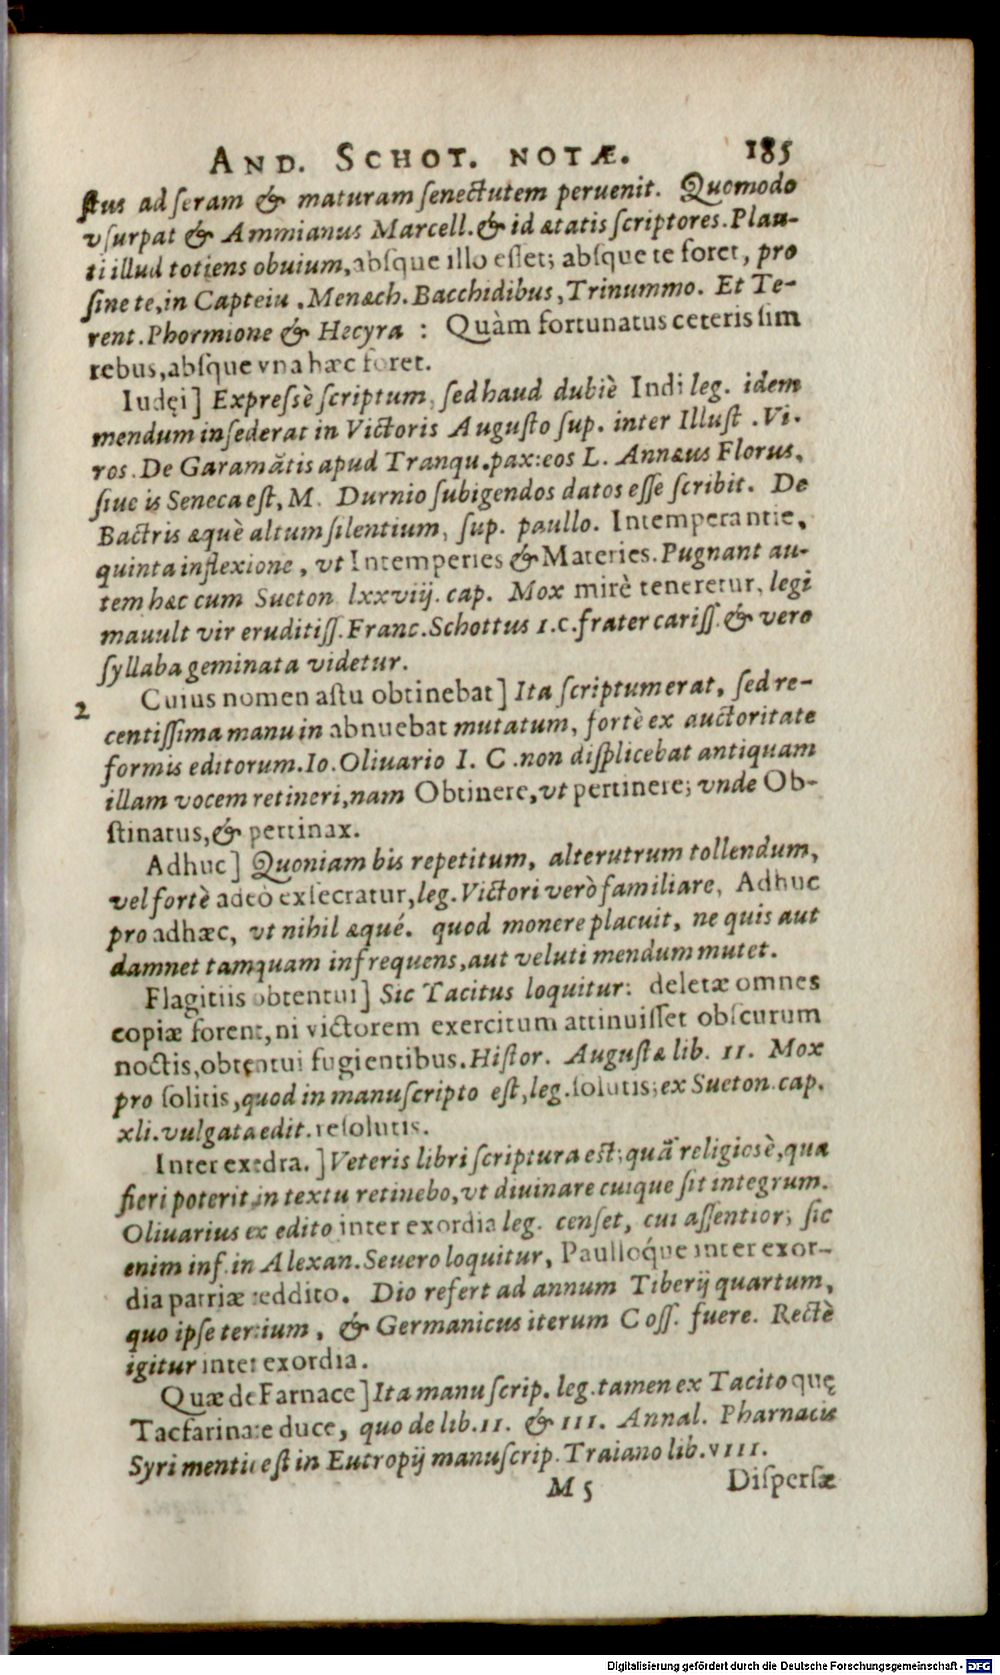 AND. SCHOT. NOTÆ. 185
ſtus ad ſeram & maturam ſenectutem peruenit. Quomodo
vſurpat & Ammianus Marcell. & id ætatis ſcriptores. Plau-
ti illud totiens obuium, abſque illo eſſet; abſque te foret, pro
ſine te, in Capteiu. Menæch. Bacchidibus, Trinummo. Et Te-
rent. Phormione & Hecyra : Quàm fortunatus ceteris ſim
rebus, abſque vna hæc foret.
Iudęi] Expreſsè ſcriptum, ſed haud dubiè Indi leg. idem
mendum inſederat in Victoris Auguſto ſup. inter Illuſt. Vi-
ros. De Garamãtis apud Tranqu. pax: eos L. Annæus Florus,
ſiue is Seneca eſt, M. Durnio ſubigendos datos eſſe ſcribit. De
Bactris æquè altum ſilentium, ſup. paullo. Intemperantie,
quinta inflexione, vt Intemperies & Materies. Pugnant au-
tem hæc cum Sueton lxxviij. cap. Mox mirè teneretur, legi
mauult vir eruditiſſ. Franc. Schottus I.C. frater cariſſ. & vero
ſyllaba geminata videtur.
2 Cuius nomen aſtu obtinebat] Ita ſcriptum erat, ſed re-
centiſſima manu in abnuebat mutatum, fortè ex auctoritate
formis editorum. Io. Oliuario I. C. non diſplicebat antiquam
illam vocem retineri, nam Obtinere, vt pertinere; vnde Ob-
ſtinatus, & pertinax.
Adhuc] Quoniam bis repetitum, alterutrum tollendum,
vel fortè adeò exſecratur, leg. Victori verò familiare, Adhuc
pro adhæc, vt nihil æqué. quod monere placuit, ne quis aut
damnet tamquam infrequens, aut veluti mendum mutet.
Flagitiis obtentui] Sic Tacitus loquitur: deletæ omnes
copiæ forent, ni victorem exercitum attinuiſſet obſcurum
noctis, obtentui fugientibus. Hiſtor. Auguſtæ lib. II. Mox
pro ſolitis, quod in manuſcripto eſt, leg. ſolutis; ex Sueton. cap.
xli. vulgata edit. reſolutis.
Inter exedra.] Veteris libri ſcriptura eſt; quã religiosè, qua
fieri poterit, in textu retinebo, vt diuinare cuique ſit integrum.
Oliuarius ex edito inter exordia leg. cenſet, cui aſſentior; ſic
enim inf. in Alexan. Seuero loquitur, Paulloq́ue inter exor-
dia patriæ reddito. Dio refert ad annum Tiberij quartum,
quo ipſe tertium, & Germanicus iterum Coſſ. fuere. Rectè
igitur inter exordia.
Quæ de Farnace] Ita manuſcrip. leg. tamen ex Tacito quę
Tacfarinare duce, quo de lib. II. & III. Annal. Pharnacis
Syri mentio eſt in Eutropij manuſcrip. Traiano lib. VIII.
M 5 Diſperſæ
Digitalisierung gefördert durch die Deutsche Forschungsgemeinschaft - DFG